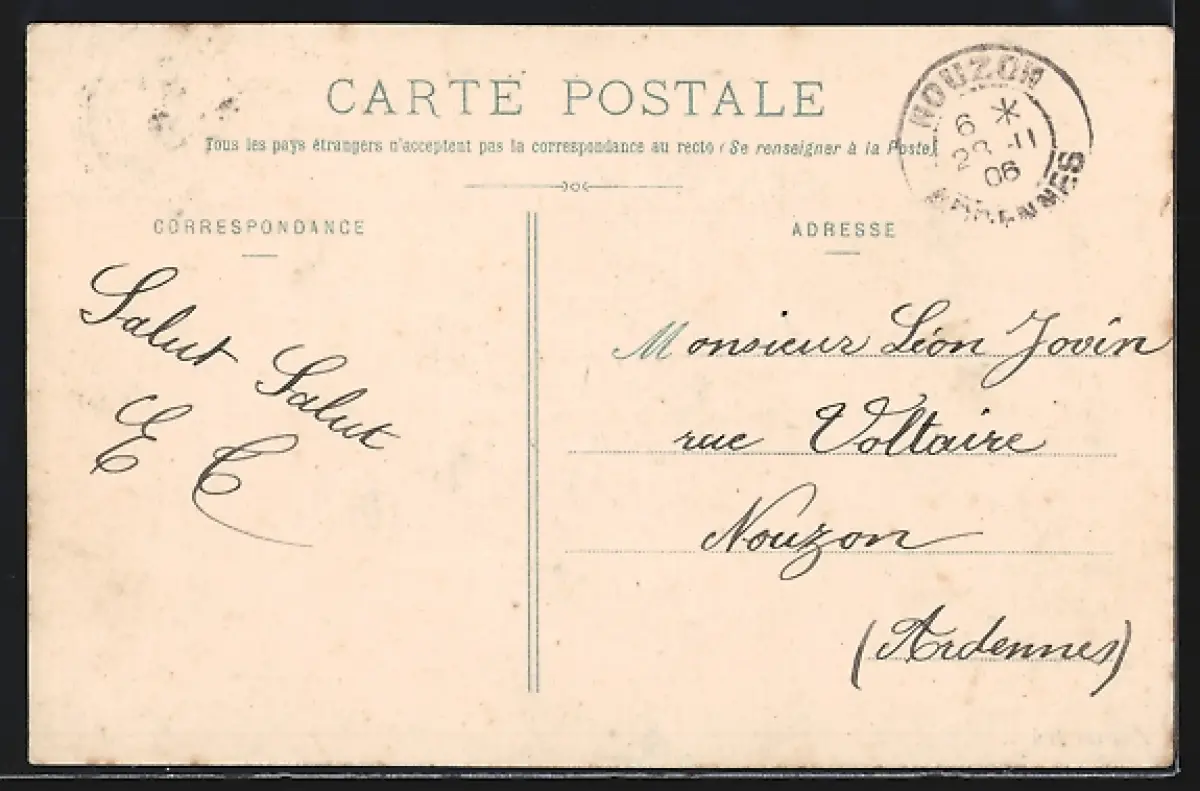 CARTE POSTALE
Tous les pays étrangers n'acceptent pas la correspondance au recto (Se renseigner à la Poste)
NOUZON
6 *
11
06
ARDENNES
CORRESPONDANCE
Salut Salut
E C
ADRESSE
Monsieur Léon Jovin
rue Voltaire
Nouzon
(Ardennes)